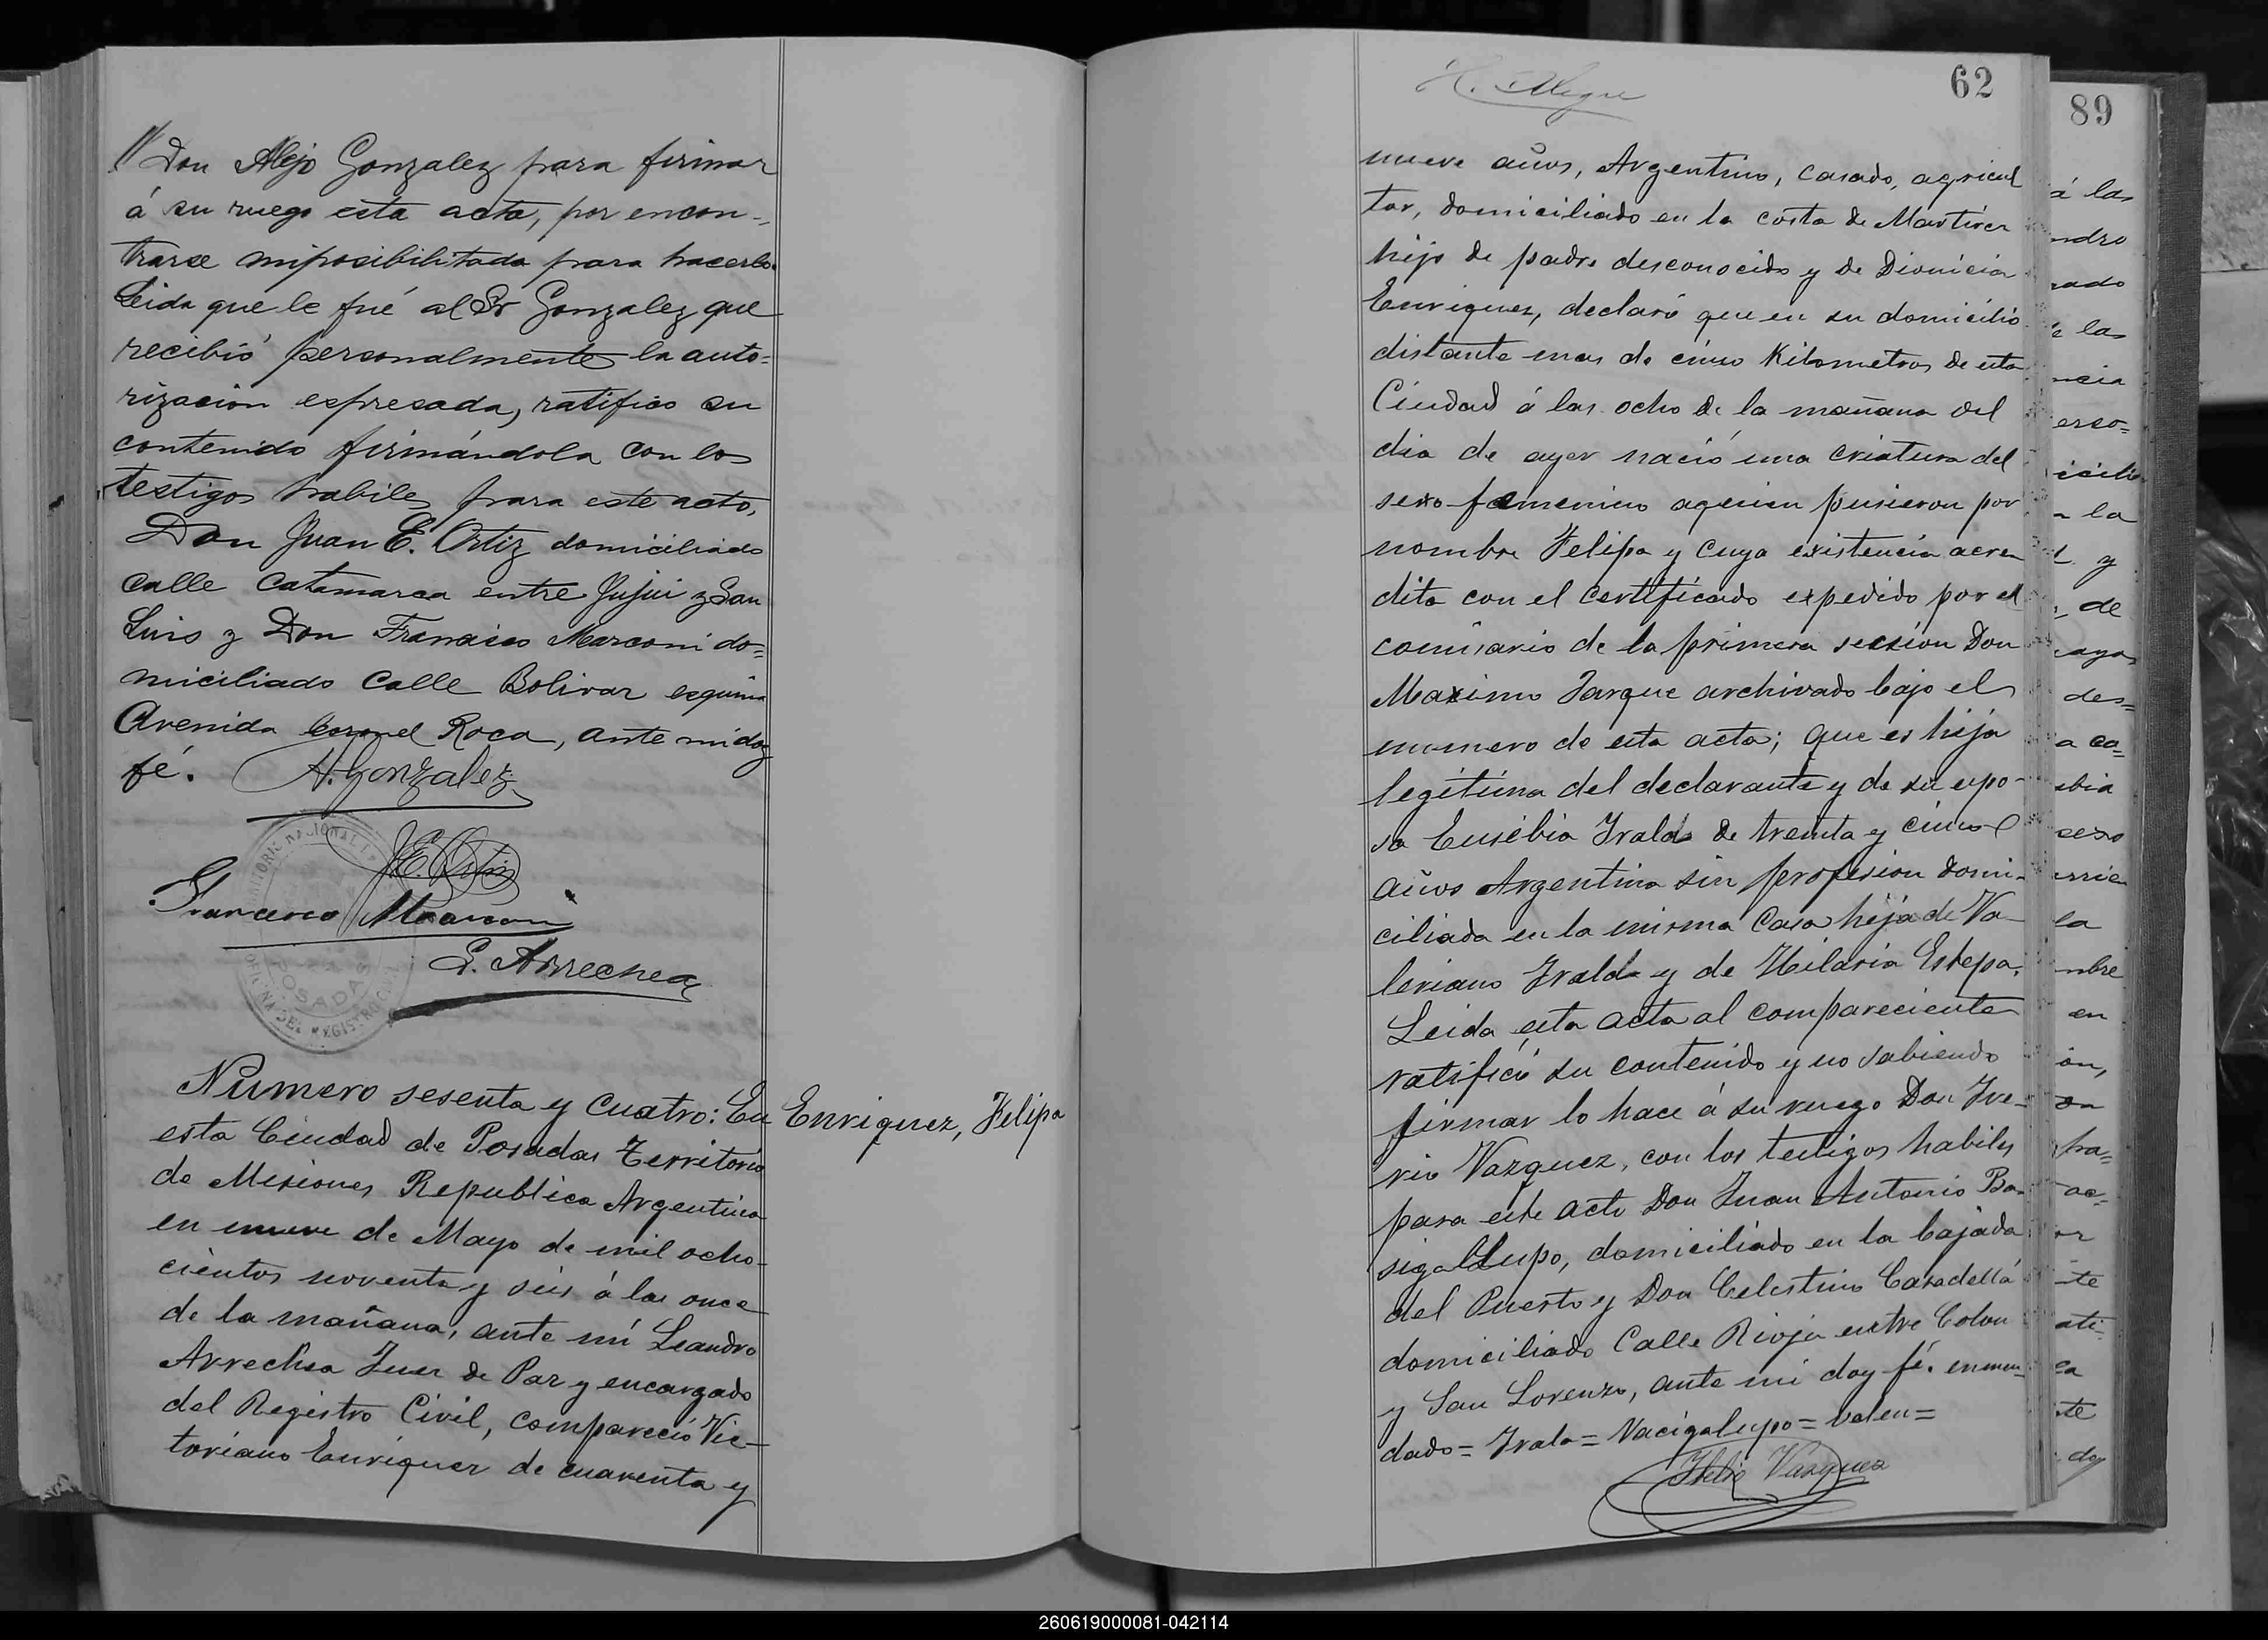 Don Alejo Gonzalez para firmar
á su ruego esta acta, por encon-
trarse imposibilitada para hacerlo.
Leida que le fué al Sr Gonzalez que
recibió personalmente la auto=
rizacion espresada, ratifico su
contenido firmándola con los
testigos habiles para este acto,
Don Juan E. Ortiz domiciliado
calle Catamarca entre Jujui y San
Luis y Don Francisco Marconi do=
miciliado Calle Bolivar esquina
Avenida Coronel Roca, ante mi doy
fé. A. Gonzalez
J.E. Ortiz
Francesco Marconi
L. Arrechea
POSADAS
OFICINA DEL REGISTRO CIVIL
Numero sesenta y cuatro: En
Enriquez, Felipa
esta Ciudad de Posadas Territorio
de Misiones Republica Argentina
en nueve de Mayo de mil ocho-
cientos noventa y seis á las once
de la mañana, ante mi Leandro
Arrechea Juez de Paz y encargado
del Registro Civil, compareció Vic-
toriano Enriquez de cuarenta y
62
nueve años, Argentino, casado, agricul
tor, domiciliado en la costa de Martires
hijo de padre desconocido y de Dionicia
Enriquez, declaró que en su domicilio
distante mas de cinco Kilometros de esta
Ciudad á las ocho de la mañana del
dia de ayer nació una criatura del
sexo femenino aquien pusieron por
nombre Felipa y cuya existencia acre
dita con el certificado expedido por el
comisario de la primera seccion Don
Maximo Jarque archivado bajo el
numero de esta acta; que es hija
legitima del declarante y de su espo-
sa Eusebia Irala de treinta y cinco
años Argentina sin profesion domi-
ciliada en la misma casa hija de Va-
leriano Irala y de Hilaria Estepa.
Leida esta acta al compareciente
ratificó su contenido y no sabiendo
firmar lo hace á su ruego Don Ire-
rio Vazquez, con los testigos habiles
para este acto Don Juan Antonio Ba-
sigalupo, domiciliado en la bajada
del Puerto y Don Celestino Casadellá
domiciliado Calle Rioja entre Colon
y San Lorenzo, ante mi doy fé. enmen-
dado= Irala= Vacigalupo= valen=
Vazquez
89
á las
ndro
nado
e las
ncia
erso=
icilio
a la
y
de
des=
a ca=
ebia
sexo
la
mbre
en
on,
pra=
ac=
or
te
ati=
ca
te
doy
260619000081-042114